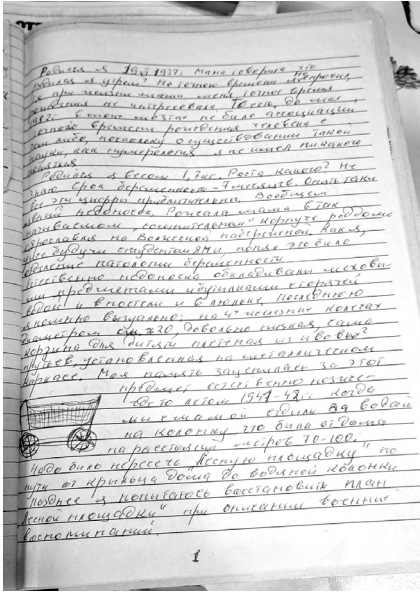 Родился я 19 VI 1937г. Мама говорила что
родился я утром? Но точного времени не
я при жизни мамы меня точное время
рождения не интересовало. То есть, до мая
1982г. в моих мозгах не было ассоциации
точного времени рождения человека с
чем либо, поскольку о существовании такой
науки, как нумерология я не имел никакого
понятия
Родился я весом 1, кг. Роста какого? Не
знаю. Срок беременности - 7 месяцев. Опять таки
все эти цифры приблизительны. Вообщем
недоносок. Рожала мама в так
называемом „сомнительном" корпусе роддома
Ярославля на Волжской набережной. Как я,
уже будучи студентом ЯМИ понял это было
отделение патологии беременности
Естественно недоноска обкладывали
предметами и бутылками с горячей
водой и в постели и в люльке. Последнюю
я помню визуально: на 4х железных колесах
диаметром см ≈20, довольно низкая, сама
корзина для дитяти плетёная из ивовых?
прутьев, установленная на металлическом
каркасе. Моя память зацепилась за этот
предмет естественно позже
где-то летом 1941-42г. когда
мы с мамой ездили за водой
на колонку что была от дома
на расстоянии метров 70-100.
Надо было пересечь "Лесную площадку" по
пути от крыльца дома до водяной колонки
Позднее я попытаюсь восстановить план
„Лесной площадки" при описании военных
воспоминаний.
1